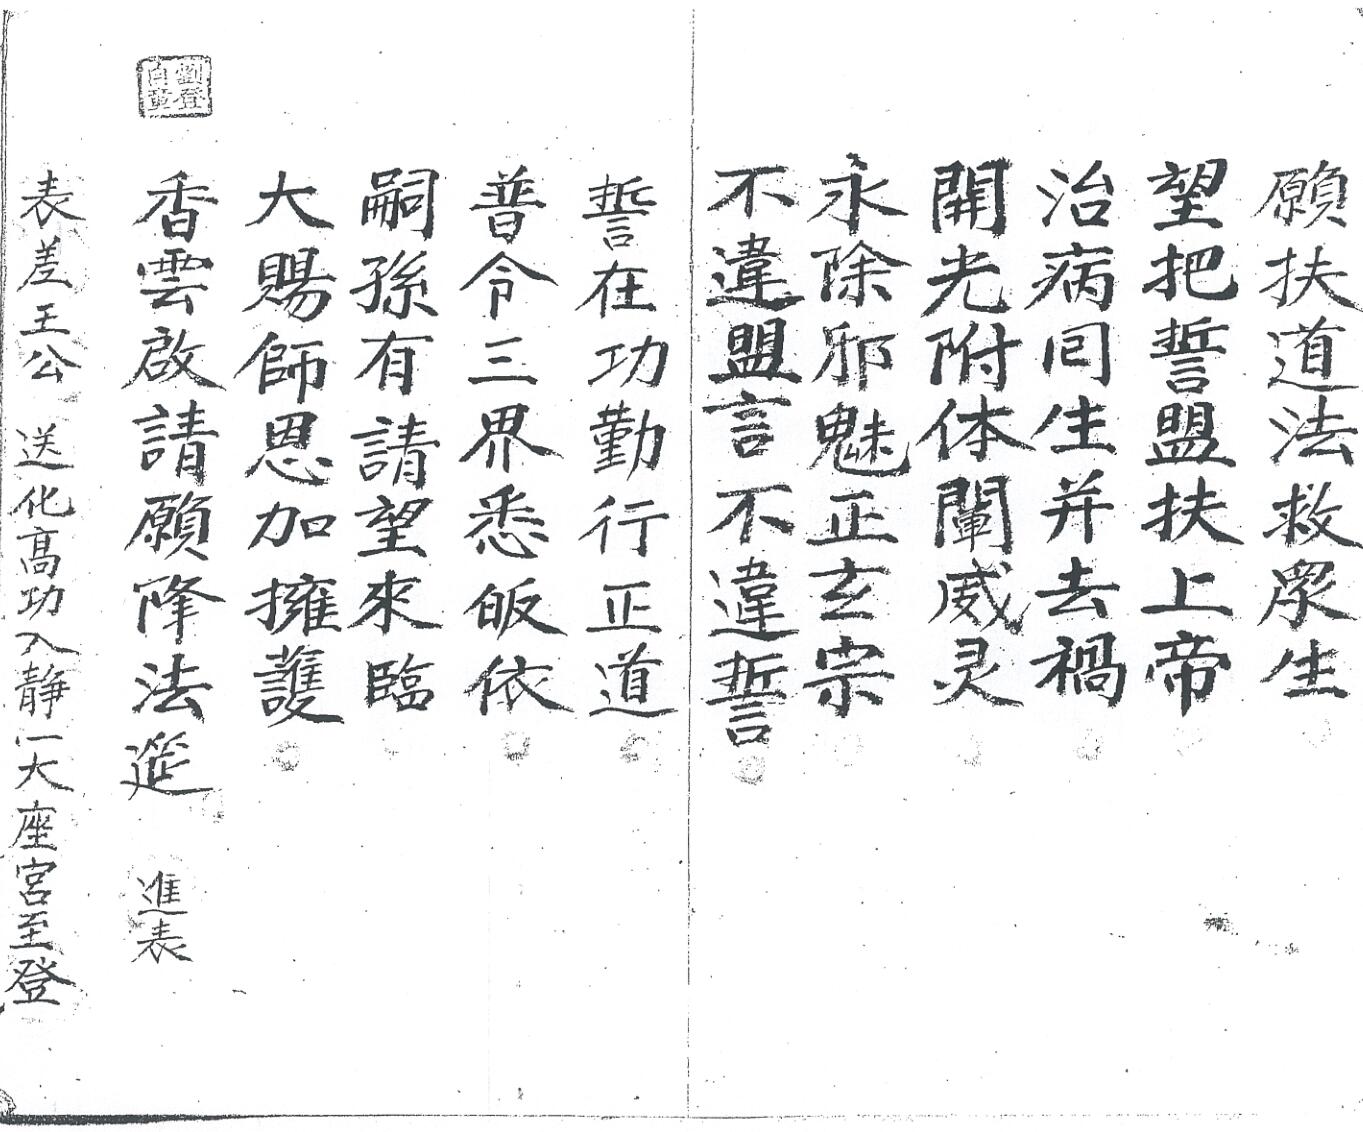 願扶道法救眾生
望把誓盟扶上帝
治病回生并去禍
開光附体闡威灵
永除邪魅正玄宗
不違盟言不違誓
誓在功勤行正道
普令三界悉皈依
嗣孫有請望來臨
大賜師恩加擁護
香雲啟請願降法筵 進表
表差王公 送化高功入静一大座宮至登
劉登